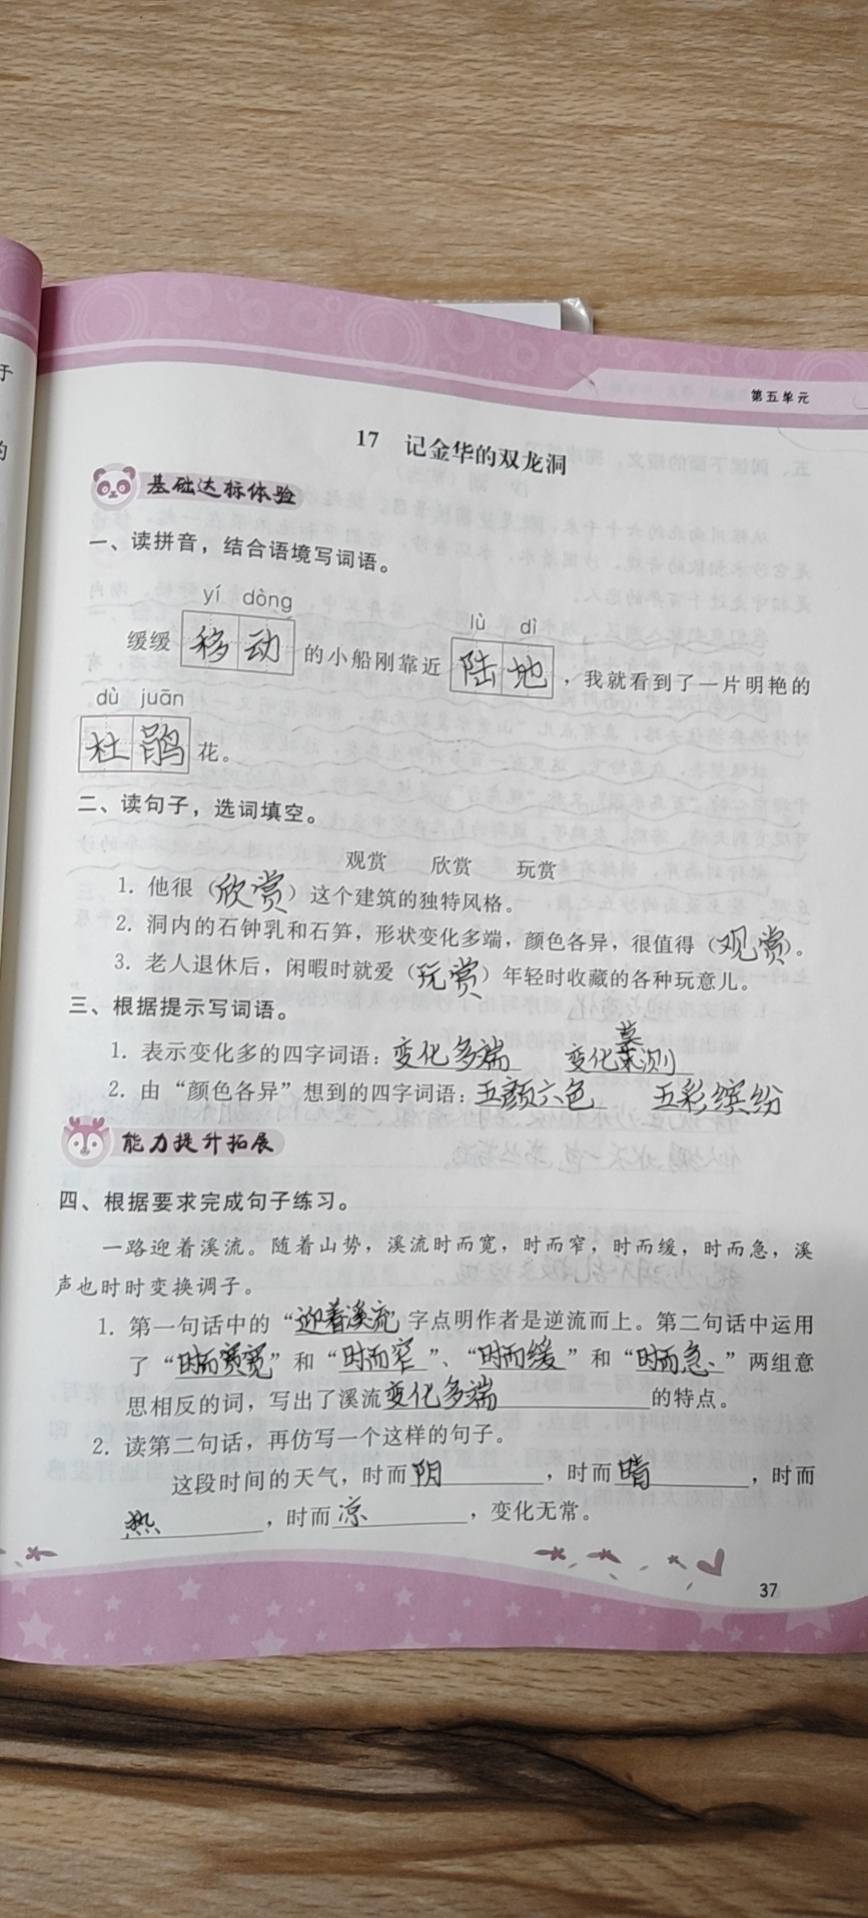 第五单元
17 记金华的双龙洞
基础达标体验
一、读拼音，结合语境写词语。
yí dòng
lù dì
缓缓 移动 的小船刚靠近 陆地 ，我就看到了一片明艳的
dù juān
杜鹃 花。
二、读句子，选词填空。
观赏 欣赏 玩赏
1. 他很（欣赏）这个建筑的独特风格。
2. 洞内的石钟乳和石笋，形状变化多端，颜色各异，很值得（观赏）。
3. 老人退休后，闲暇时就爱（玩赏）年轻时收藏的各种玩意儿。
三、根据提示写词语。
1. 表示变化多的四字词语：变化多端 变化莫测
2. 由“颜色各异”想到的四字词语：五颜六色 五彩缤纷
能力提升拓展
四、根据要求完成句子练习。
一路迎着溪流。随着山势，溪流时而宽，时而窄，时而缓，时而急，溪
声也时时变换调子。
1. 第一句话中的“迎着溪流”字点明作者是逆流而上。第二句话中运用
了“时而宽”和“时而窄”、“时而缓”和“时而急”两组意
思相反的词，写出了溪流变化多端的特点。
2. 读第二句话，再仿写一个这样的句子。
这段时间的天气，时而阴，时而晴，时而
热，时而凉，变化无常。
37